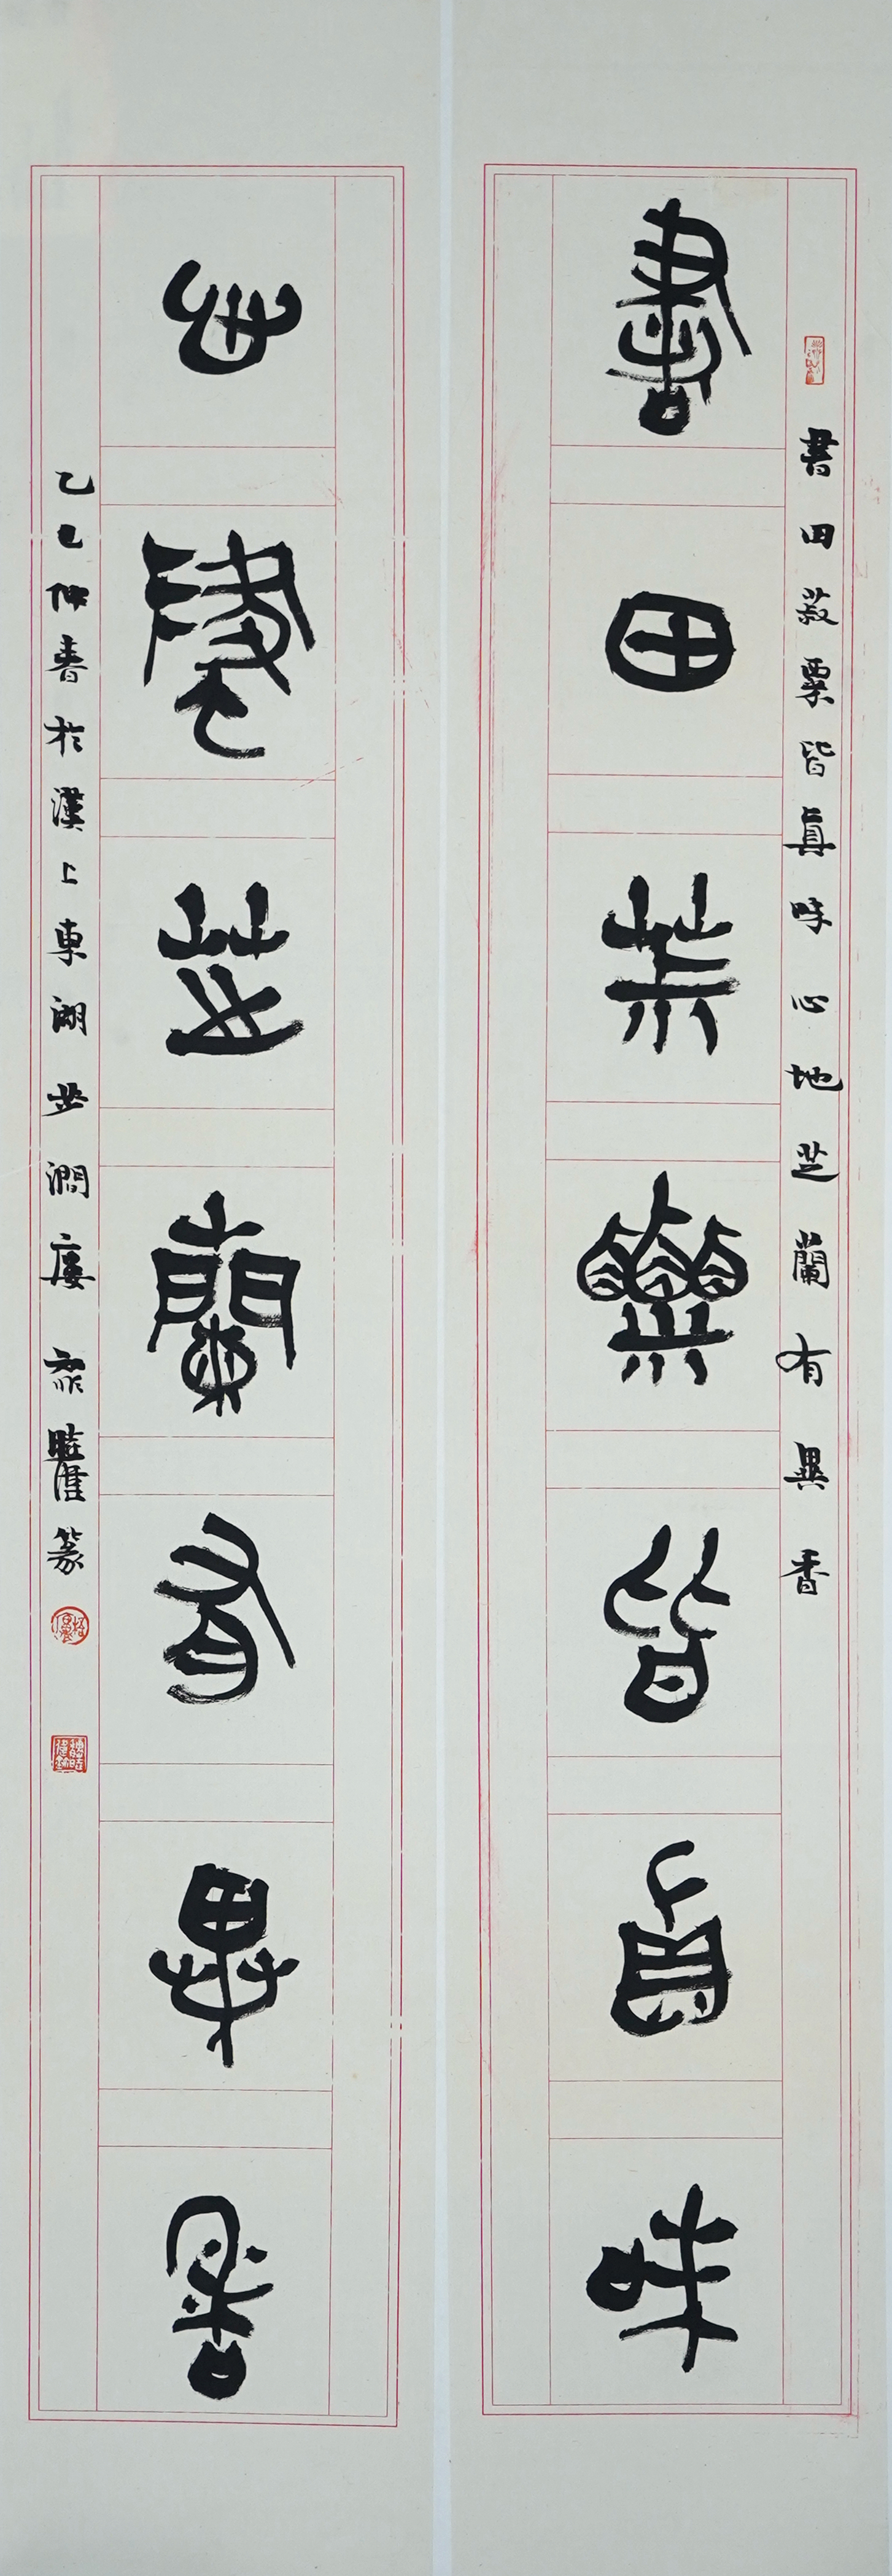 書田菽粟皆真味
書田菽粟皆真味心地芝蘭有異香
心地芝蘭有異香
乙巳仲春於漢上東湖步澗廔 篆